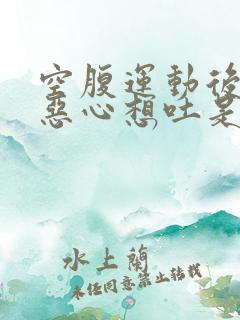 空腹運動後
惡心想吐是
水上蘭
未经同意禁止转载